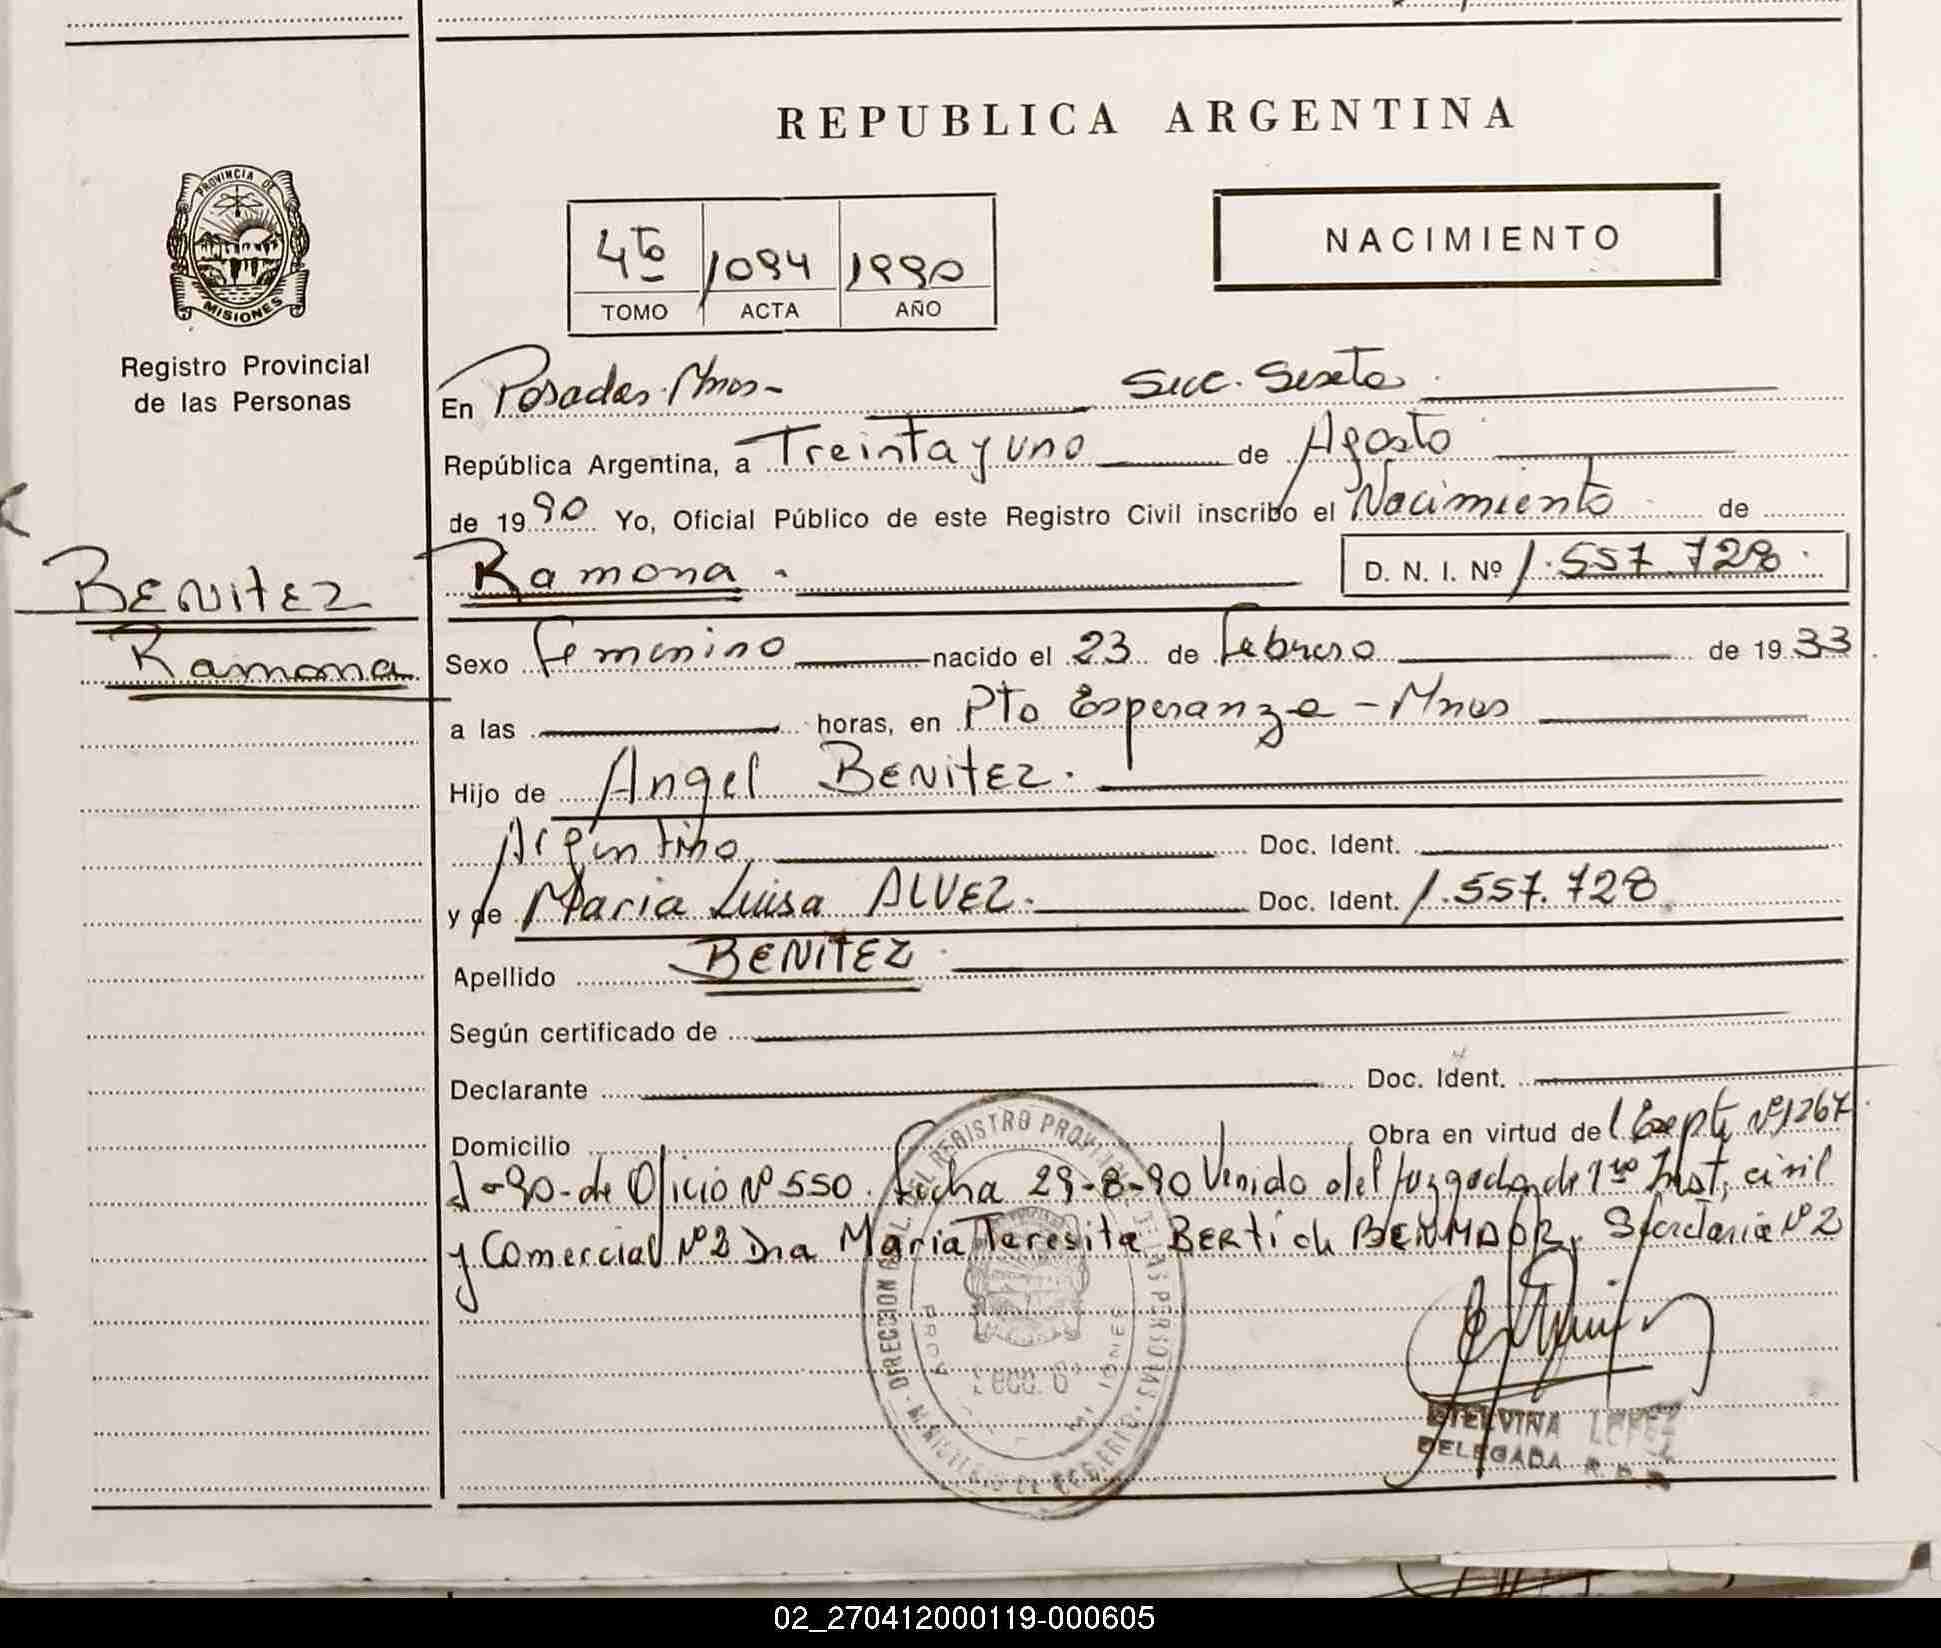 REPUBLICA ARGENTINA
PROVINCIA DE
MISIONES
Registro Provincial
de las Personas
4to 1094 1990
TOMO ACTA AÑO
NACIMIENTO
En Posadas-Mnes- Secc. Sexta
República Argentina, a Treinta y uno de Agosto
de 1990 Yo, Oficial Público de este Registro Civil inscribo el Nacimiento de
BENITEZ
Ramona
Ramona. D. N. I. Nº 1.557.728
Sexo Femenino nacido el 23 de Febrero de 1933
a las horas, en Pto Esperanza - Mnes
Hijo de Angel BENITEZ.
Argentino Doc. Ident.
y de Maria Luisa ALVEZ. Doc. Ident. 1.557.728
Apellido BENITEZ
Según certificado de
Declarante Doc. Ident.
Domicilio Obra en virtud del Expte Nº 1267
-90- de Oficio Nº 550. fecha 29-8-90 Venido del Juzgado de 1ra Inst, civil
y Comercial Nº 2 Dra Maria Teresita BERtich Secretaria Nº 2
DIRECCION GRAL. DEL REGISTRO PROVINCIAL DE LAS PERSONAS
MINISTERIO DE GOBIERNO
PROV. MISIONES
ETELVINA LOPEZ
DELEGADA R. P. P.
02_270412000119-000605